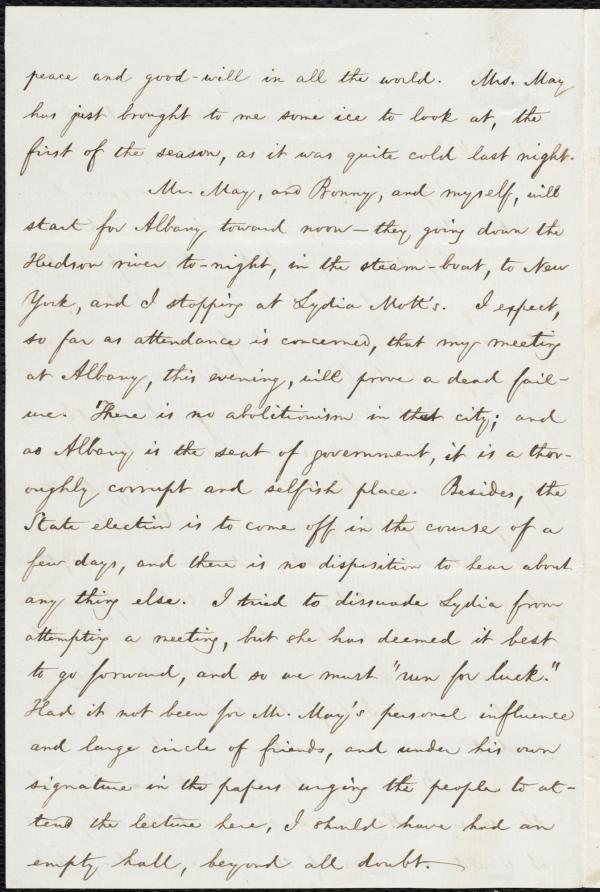 peace and good-will in all the world. Mrs. May
has just brought to me some ice to look at, the
first of the season, as it was quite cold last night.
Mr. May, and Bonny, and myself, will
start for Albany toward noon—they going down the
Hudson river to-night, in the steam-boat, to New
York, and I stopping at Lydia Mott's. I expect,
so far as attendance is concerned, that my meeting
at Albany, this evening, will prove a dead fail-
ure. There is no abolitionism in that city; and
as Albany is the seat of government, it is a thor-
oughly corrupt and selfish place. Besides, the
State election is to come off in the course of a
few days, and there is no disposition to hear about
any thing else. I tried to dissuade Lydia from
attempting a meeting, but she has deemed it best
to go forward, and so we must "run for luck."
Had it not been for Mr. May's personal influence
and large circle of friends, and under his own
signature in the papers urging the people to at-
tend the lecture here, I should have had an
empty hall, beyond all doubt.